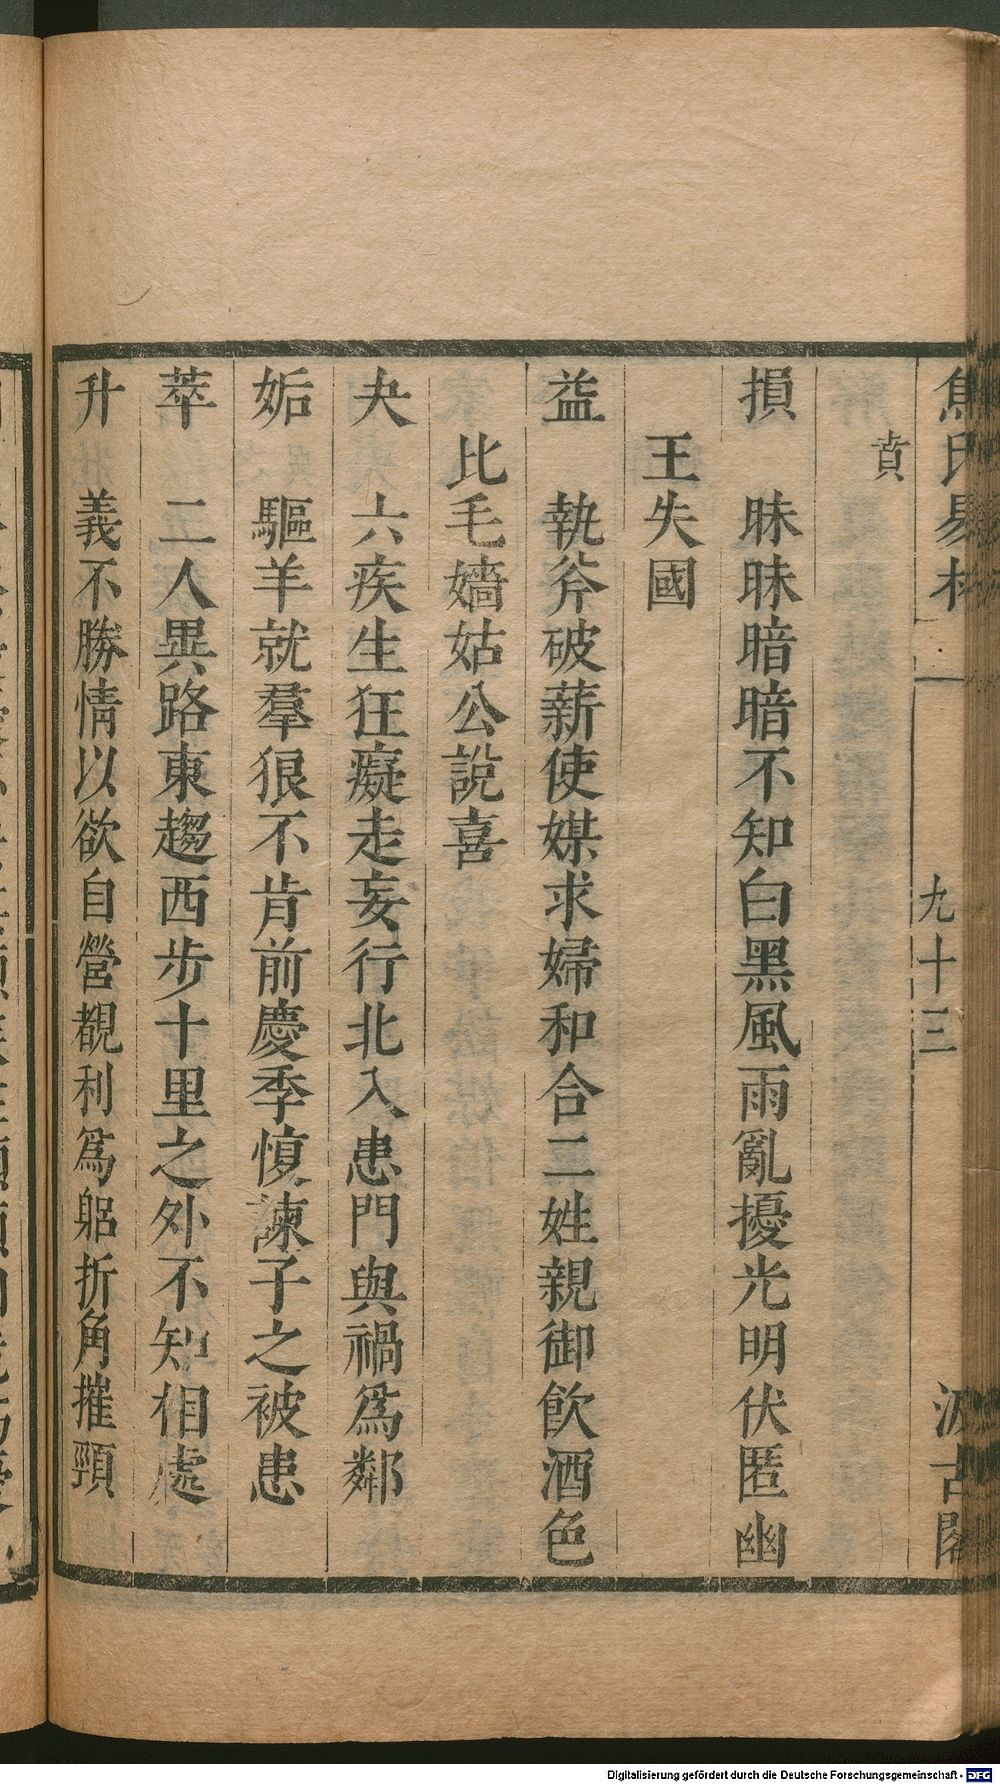 焦氏易林
一
九十三
汲古閣
賁
損 昧昧暗暗不知白黑風雨亂擾光明伏匿幽
王失國
益 執斧破薪使媒求婦和合二姓親御飲酒色
比毛嬙姑公說喜
夬 六疾生狂癡走妄行北入患門與禍爲鄰
姤 驅羊就羣狠不肯前慶季愎諫子之被患
萃 二人異路東趨西步十里之外不知相處
升 義不勝情以欲自營覩利爲躳折角摧頸
Digitalisierung gefördert durch die Deutsche Forschungsgemeinschaft - DFG